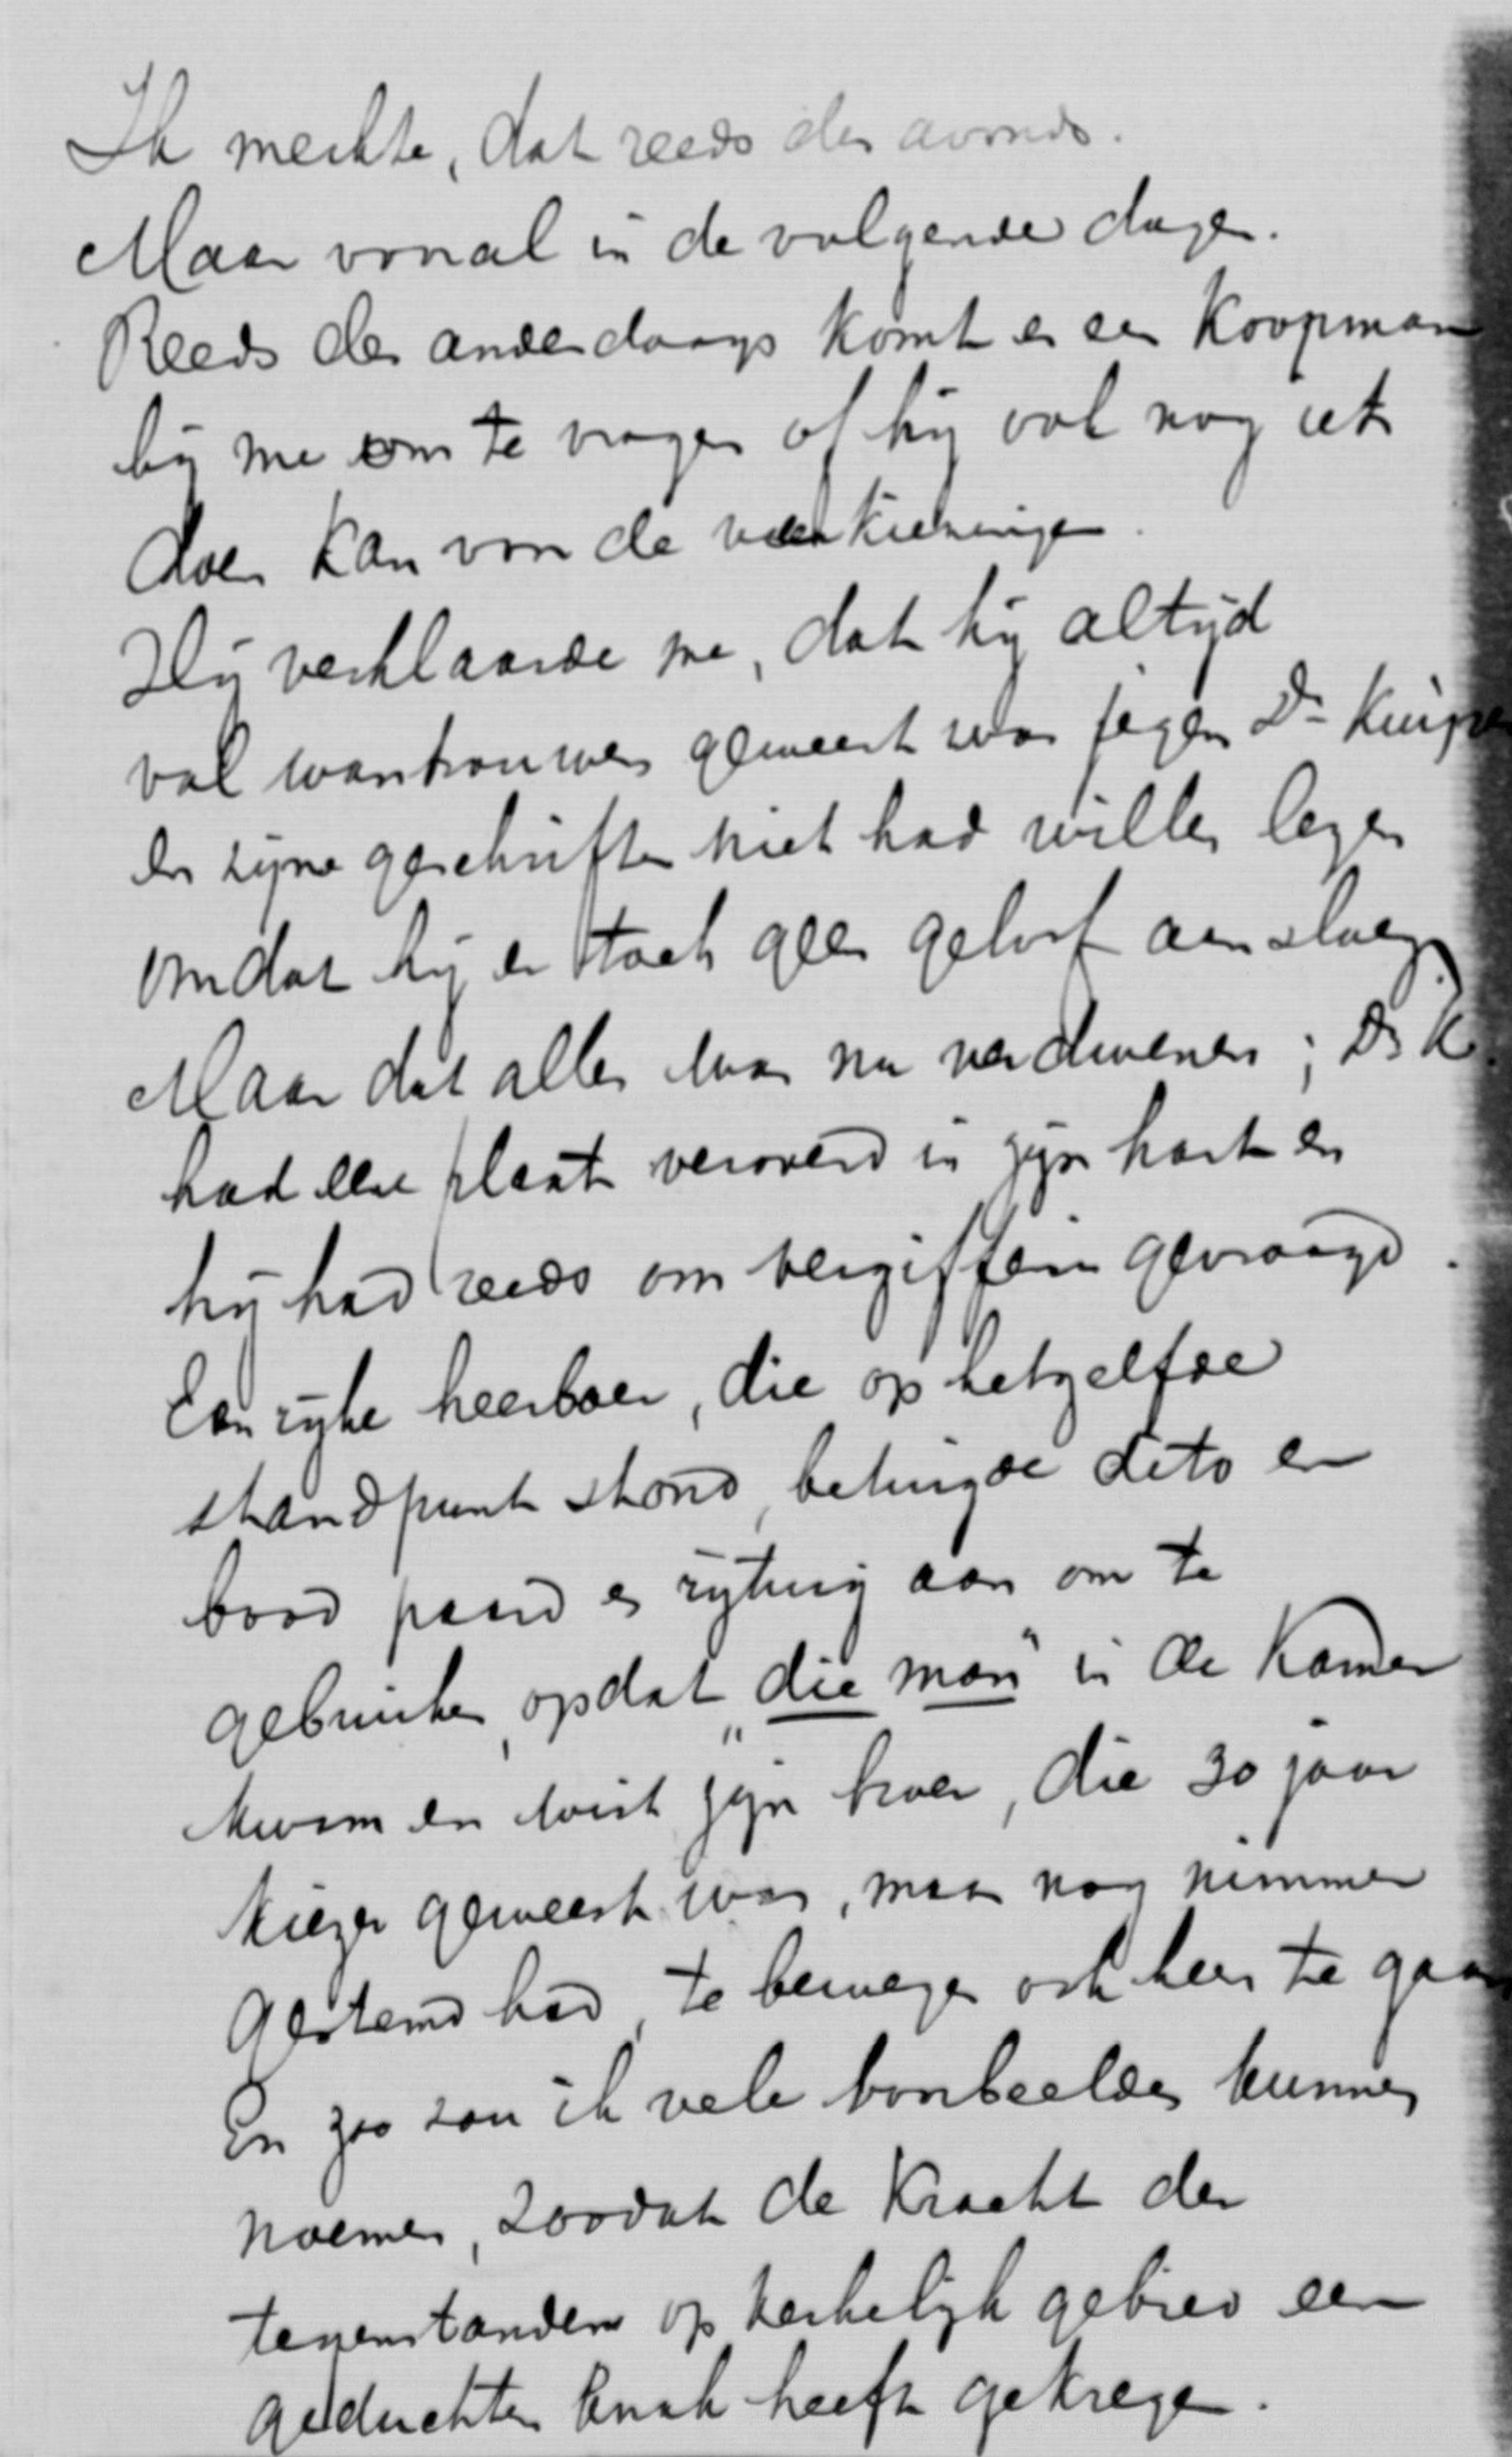 Ik merkte, dat reeds des avonds.
Maar vooral in de volgende dagen.
Reeds des anderdaags komt er een Koopman
bij me om te vragen of hij ook nog iets
doen kan voor de verkiezingen.
Hij verklaarde me, dat hij altijd
vol wantrouwen geweest was jegens Dr Kuiper
en zijne geschriften niet had willen lezen
omdat hij er toch geen geloof aan sloeg.
Maar dat alles was nu verdwenen; Dr K.
had eene plaats veroverd in zijn hart en
hij had reeds om vergiffenis gevraagd.
Een rijke heerboer, die op hetzelfde
standpunt stond, betuigde dito en
bood paard en rijtuig aan om te
gebruiken, opdat „die man" in de Kamer
kwam en wist zijn broer, die 30 jaar
kiezer geweest was, maar nog nimmer
gestemd had, te bewegen ook heen te gaan
En zoo zou ik vele voorbeelden kunnen
noemen, zoodat de Kracht der
tegenstanders op kerkelijk gebied een
geduchten knak heeft gekregen.